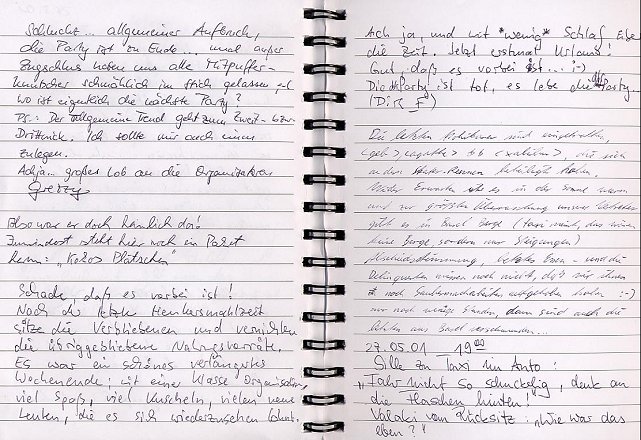 Schluchz... allgemeiner Aufbruch,
die Party ist zu Ende... und außer
Zugschlus haben uns alle Mitpuffer-
kutscher schmählich im Stich gelassen
wo ist eigentlich die nächste Party?
PS.: Der allgemeine Trend geht zum Zweit- bzw.
Drittnick. Ich sollte mir auch einen
zulegen.
Achja... großes Lob an die Organisatoren
Also war er doch heimlich da!
Zumindest steht hier noch ein Paket
„Kokos Plätzchen"
Schade, daß es vorbei ist!
Nach der letzten Henkersmahlzeit
sitze die Verbliebenen und vernichten
die übriggebliebene Nahrungsvorräte.
Es war ein schönes verlängertes
Wochenende; mit einer klasse Organisation,
viel Spaß, viel Kuscheln, vielen neuen
Leuten, die es sich wiederzusehen lohnt.
Ach ja, und mit *wenig* Schlaf
die Zeit. Jetzt erstmal Urlaub!
Gut, daß es vorbei ist... ;-)
Die Party ist tot, es lebe die Party.
Die letzten sind eingetroffen,
die sich
an dem Rennen beteiligt haben.
Wider Erwarten es in der Sonne warm
und zur größten Überraschung unserer
gibt es in Basel Berge (Taxi meint, das wären
keine Berge sondern nur Steigungen)
Abschiedsstimmung, letztes Essen - und die
Delinquenten wissen noch nicht, daß wir ihnen
noch haben :-)
nur noch wenige Stunden, dann sind auch die
letzten aus Basel verschwunden...
27.05.01 19:00
Sille zu Taxi im Auto:
„Fahr nicht so schuckelig, denk an
die Flaschen hinten!"
vom Rücksitz: „Wie war das
eben?"